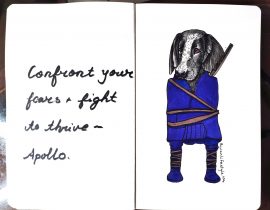 Confront your
fears + fight
to thrive –
Apollo.